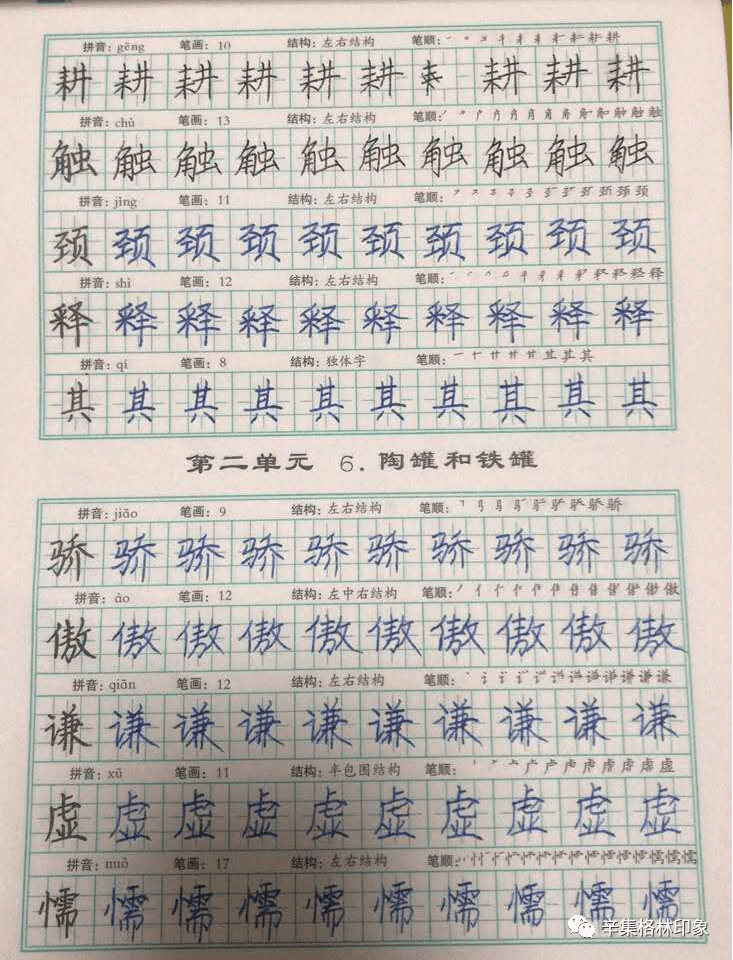 拼音：gēng 笔画：10 结构：左右结构 笔顺：
耕 耕 耕 耕 耕 耕 耕 耕 耕
拼音：chù 笔画：13 结构：左右结构 笔顺：
触 触 触 触 触 触 触 触 触 触
拼音：jǐng 笔画：11 结构：左右结构 笔顺：
颈 颈 颈 颈 颈 颈 颈 颈 颈 颈
拼音：shì 笔画：12 结构：左右结构 笔顺：
释 释 释 释 释 释 释 释 释 释
拼音：qí 笔画：8 结构：独体字 笔顺：
其 其 其 其 其 其 其 其 其 其
第二单元 6.陶罐和铁罐
拼音：jiāo 笔画：9 结构：左右结构 笔顺：
骄 骄 骄 骄 骄 骄 骄 骄 骄 骄
拼音：ào 笔画：12 结构：左中右结构 笔顺：
傲 傲 傲 傲 傲 傲 傲 傲 傲 傲
拼音：qiān 笔画：12 结构：左右结构 笔顺：
谦 谦 谦 谦 谦 谦 谦 谦 谦 谦
拼音：xū 笔画：11 结构：半包围结构 笔顺：
虚 虚 虚 虚 虚 虚 虚 虚 虚 虚
拼音：nuò 笔画：17 结构：左右结构 笔顺：
懦 懦 懦 懦 懦 懦 懦 懦 懦 懦
辛集格林印象